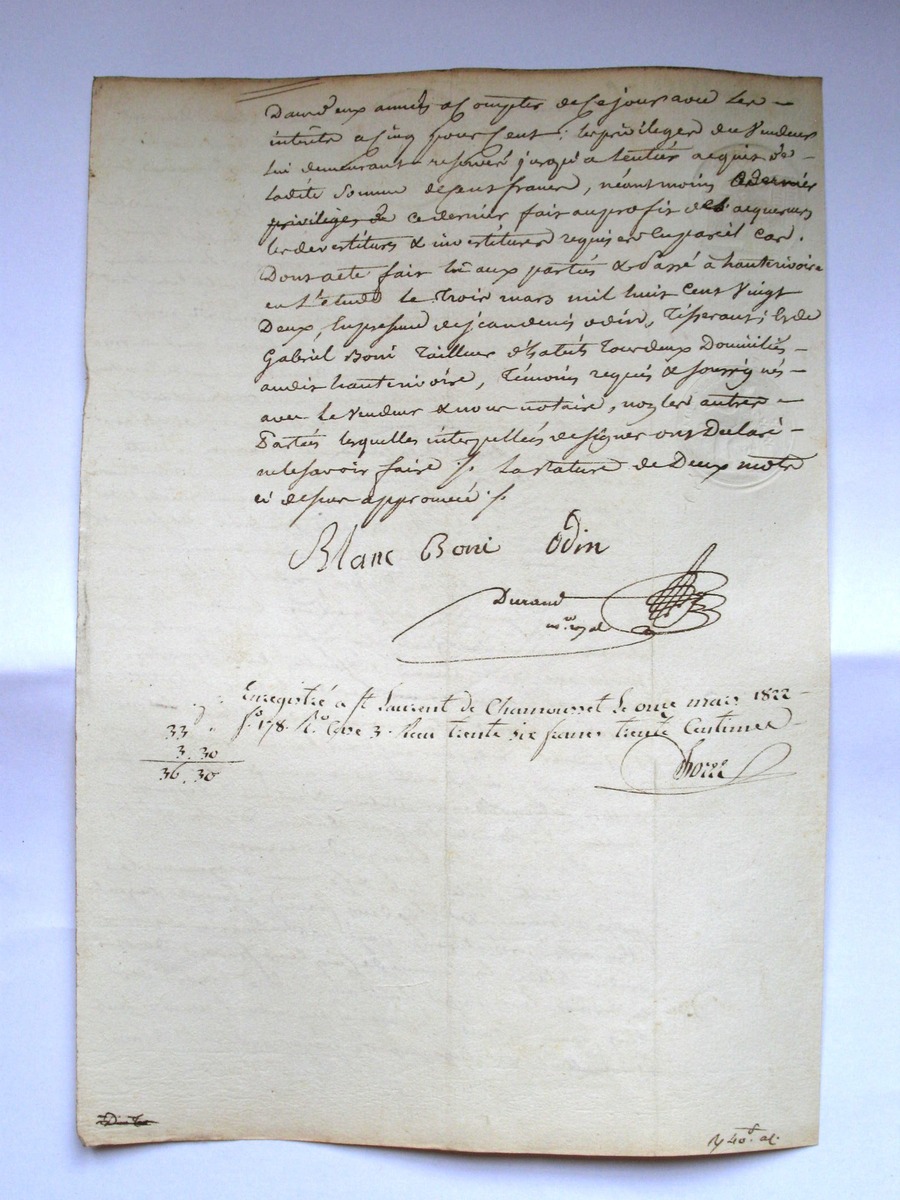 Dans deux années a Compter de Ce jour avec les
intérêts a Cinq pour Cent, les privileges du Vendeur
lui demeurant reservés jusqu'a lentier acquis de
ladite Somme de francs, néantmoins
privileges de ce dernier fait au profit des acquereurs
les devestitures & investitures requises en pareil Cas.
Dont acte fait lu aux parties & passé à hauterivoire
en L'etude le trois mars mil huit Cent Vingt
Deux, En presence de jean denis odin, Tisserant, & de
Gabriel Boni Tailleur d'habits Tous deux Domiciliés
audit hauterivoire, Témoins requis & soussignés
avec le Vendeur & nous notaire, non les autres
Parties lesquelles interpellées de signer ont Déclaré
ne le savoir faire ./. la rature de Deux mots
ci dessus approuvée ./.
Blanc Boni Odin
Durand
n.re royal
Enregistré a St Laurent de Chamousset le onze mars 1822
f.o 178. R.o Case 3. Reçu trente six francs trente Centimes
33
3. 30
36. 30